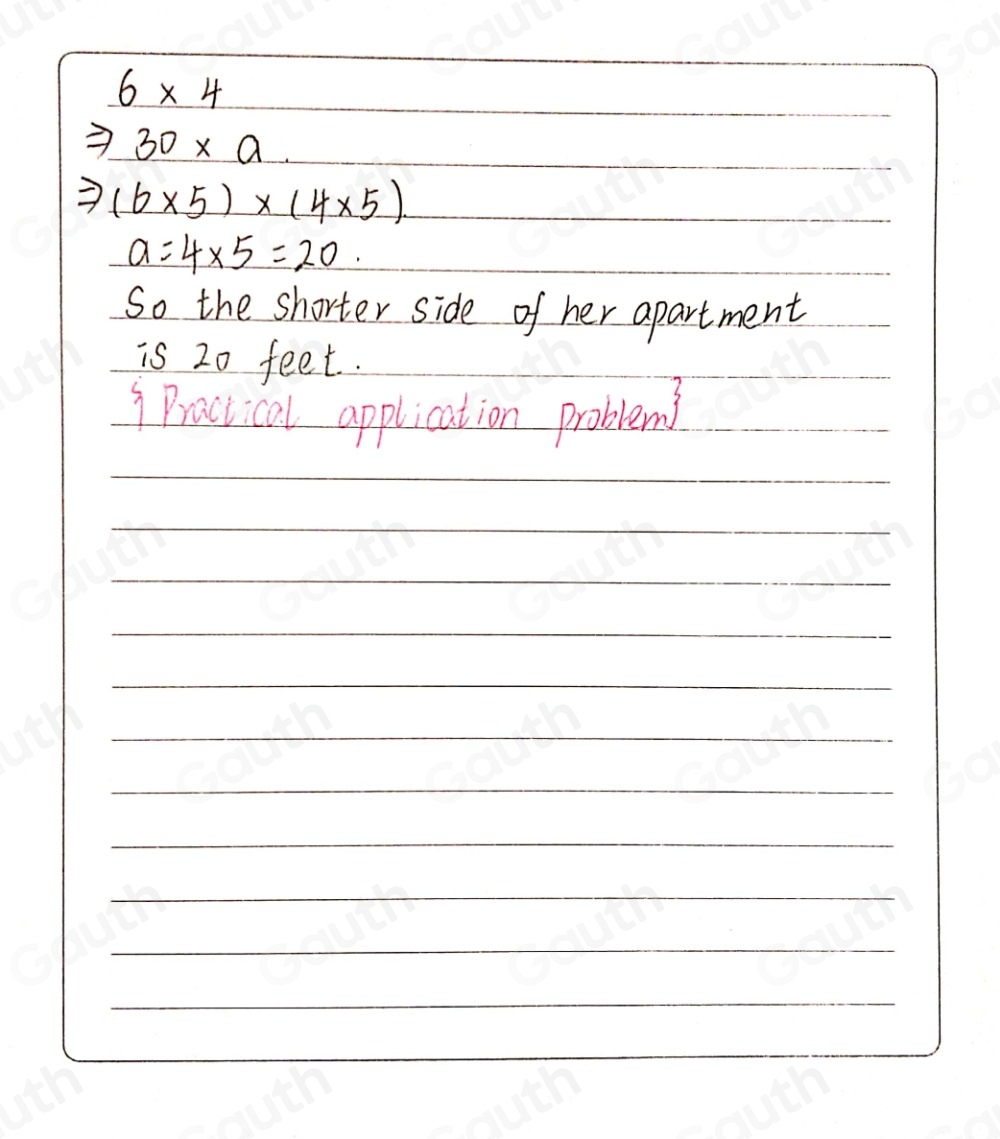 6 × 4
⇒ 30 × a.
⇒ (6×5) × (4×5).
a=4×5=20.
So the shorter side of her apartment
is 20 feet.
{Practical application problem}
Gauth